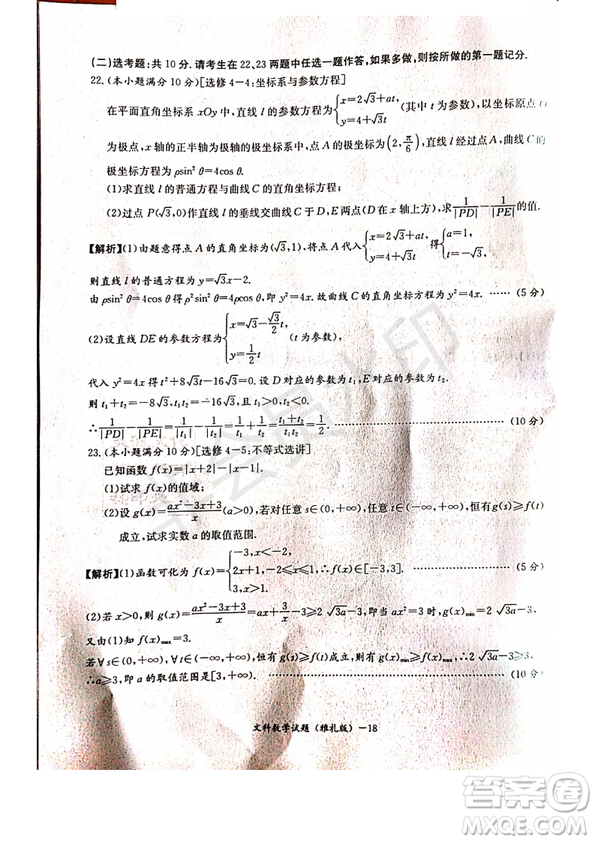 (二)选考题:共 10 分. 请考生在 22、23 两题中任选一题作答,如果多做,则按所做的第一题记分.
22.(本小题满分 10 分)[选修 4-4:坐标系与参数方程]
在平面直角坐标系 xOy 中,直线 l 的参数方程为{x=2√3+at, y=4+√3t (其中 t 为参数),以坐标原点 O
为极点,x 轴的正半轴为极轴的极坐标系中,直线 l 经过点 A(2, π/6),曲线 C 的
极坐标方程为 ρsin² θ=4cos θ.
(1)求直线 l 的普通方程与曲线 C 的直角坐标方程;
(2)过点 P(√3,0)作直线 l 的垂线交曲线 C 于 D,E 两点(D 在 x 轴上方),求 1/|PD| − 1/|PE| 的值.
【解析】(1)由题意得点 A 的直角坐标为(√3,1),将点 A 代入{x=2√3+at, y=4+√3t, 得{a=1, t=-√3,
则直线 l 的普通方程为 y=√3x-2.
由 ρsin² θ=4cos θ 得 ρ² sin² θ=4ρcos θ,即曲线 C 的直角坐标方程为 y²=4x. ……… (5 分)
(2)设直线 DE 的参数方程为{x=√3-√3/2 t, y=1/2 t (t 为参数),
代入 y²=4x 得 t²+8√3t-16√3=0. 设 D 对应的参数为 t₁,E 对应的参数为 t₂.
则 t₁+t₂=-8√3,t₁t₂=-16√3,且 t₁>0,t₂<0.
∴ 1/|PD| − 1/|PE| = 1/|t₁| − 1/|t₂| = 1/t₁ + 1/t₂ = (t₁+t₂)/(t₁t₂) = 1/2. ……… (10 分)
23.(本小题满分 10 分)[选修 4-5:不等式选讲]
已知函数 f(x)=|x+2|-|x-1|.
(1)试求 f(x)的值域;
(2)设 g(x)=(ax²-3x+3)/x (a>0),若对任意 s∈(0,+∞),任意 t∈(-∞,+∞),恒有 g(s)≥f(t)
成立,试求实数 a 的取值范围.
【解析】(1)函数可化为 f(x)={-3,x<-2, 2x+1,-2≤x≤1, 3,x>1, ∴f(x)∈[-3,3]. ……… (5 分)
(2)若 x>0,则 g(x)=(ax²-3x+3)/x=ax+3/x-3≥2√3a-3,即当 ax²=3 时,g(x)min=2√3a-3.
又由(1)知 f(x)max=3.
若∀s∈(0,+∞),∀t∈(-∞,+∞),恒有 g(s)≥f(t)成立,则有 g(x)min≥f(x)max,∴2√3a-3≥3,
∴a≥3,即 a 的取值范围是[3,+∞). ……… (10 分)
文科数学试题(雅礼版)-18
答案圈
MXQE.COM